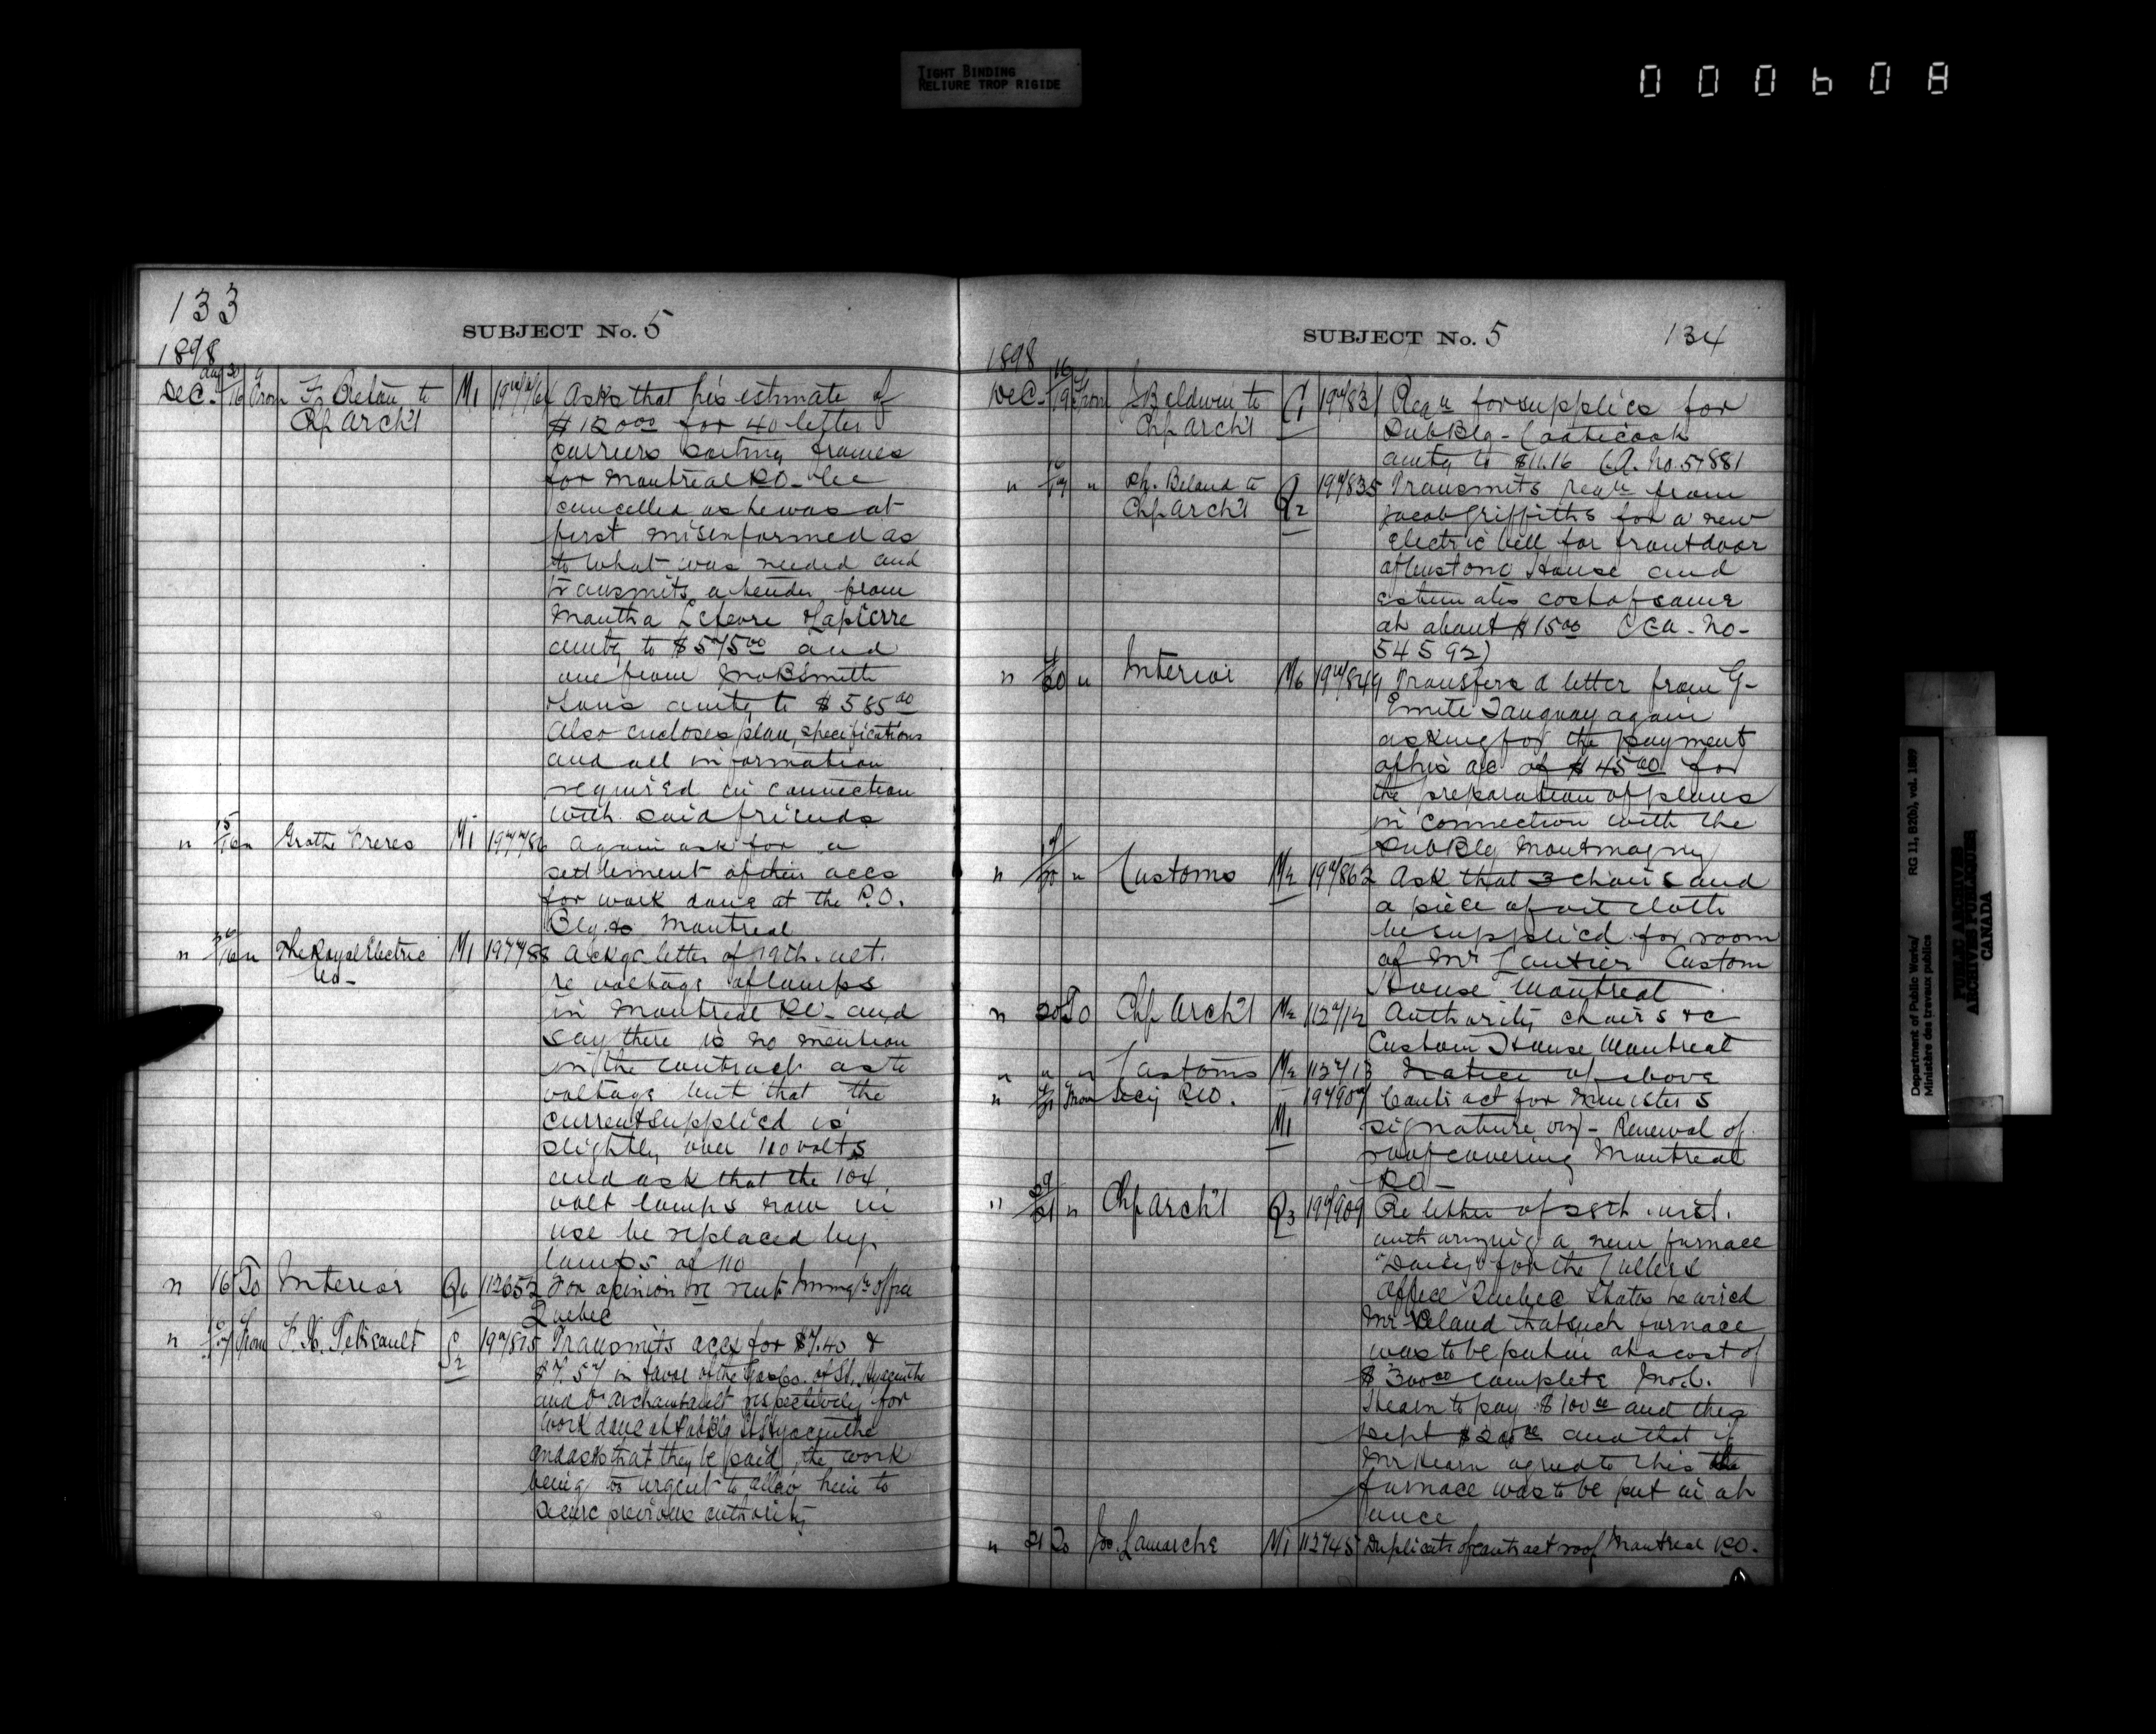 TIGHT BINDING
RELIURE TROP RIGIDE
000608
133
SUBJECT No. 5
1898
Dec. 16 From
Ch Arch't
M1
Asks that his estimate of
$1200 for 40 letter
carriers sorting frames
for Montreal P.O. be
cancelled as he was at
first misinformed as
to what was needed and
transmits a tender from
Lapierre
amtg to $575 00 and
one from Jno B Smith
& Sons amtg to $585 00
Also encloses plan, specifications
and all information
required in connection
with said friends
" 15/16 " Grothe Freres M1
Again ask for a
settlement of their accs
for work done at the P.O.
Bldg Montreal
" 16 " The Royal Electric M1 197788 Ackge letter of 19th ult.
Co-
re voltage of lamps
in Montreal P.O. and
say there is no mention
in the contract as to
voltage but that the
current supplied is
slightly over 110 volts
and ask that the 104
volt lamps now in
use be replaced by
lamps of 110
" 16 To Interior Q6 112652 For opinion re rent Immig'n office
Quebec
" From F. X. S2 Transmits accs for $7.40 &
$7.57 in favor of the Gas Co. of St. Hyacinthe
and Archambault respectively for
work done at Pub Bldg St Hyacinthe
and asks that they be paid, the work
being too urgent to allow him to
secure previous authority
SUBJECT No. 5
134
1898
Dec. 16/19 From J Baldwin to C1 197831 Reqn for supplies for
Ch Arch't
Pub Bldg - Coaticook
amtg to $11.16
" " Ph. Beland to Q2 197835 Transmits reqn from
Ch Arch't
Jacob Griffiths for a new
electric bell for front door
of Custom House and
estimates cost of same
at about $15 00 (CA - No -
54592)
" 20 " Interior M6 197849 Transfers a letter from G-
Emile Tanguay again
asking for the payment
of his ac of $45 00 for
the preparation of plans
in connection with the
Pub Bldg Montmagny
" " Customs M2 197862 Ask that 3 chairs and
a piece of oil cloth
be supplied for room
of Mr Custom
House Montreal
" 20 To Ch Arch't M2 112712 Authority chairs &c
Custom House Montreal
" " " Customs M2 112713 Notice of above
" From Secy P.W. M1 197907 Contract for Minister's
signature Renewal of
roof covering Montreal
P.O-
" 21 " Ch Arch't Q3 197909 Re letter of 28th inst.
authorizing a new furnace
"Daisy" for the Cullers
Office Quebec States he wired
Mr Beland that such furnace
was to be put in at a cost of
$300 00 complete Jno. C.
Hearn to pay $100 00 and this
Dept $200 00 and that if
Mr Hearn agreed to this the
furnace was to be put in at
once
" 21 To Jos. Lamarche M1 112745 Duplicate of contract roof Montreal P.O.
Department of Public Works/
Ministère des travaux publics
RG 11, B2(b), vol. 1889
PUBLIC ARCHIVES
ARCHIVES PUBLIQUES
CANADA